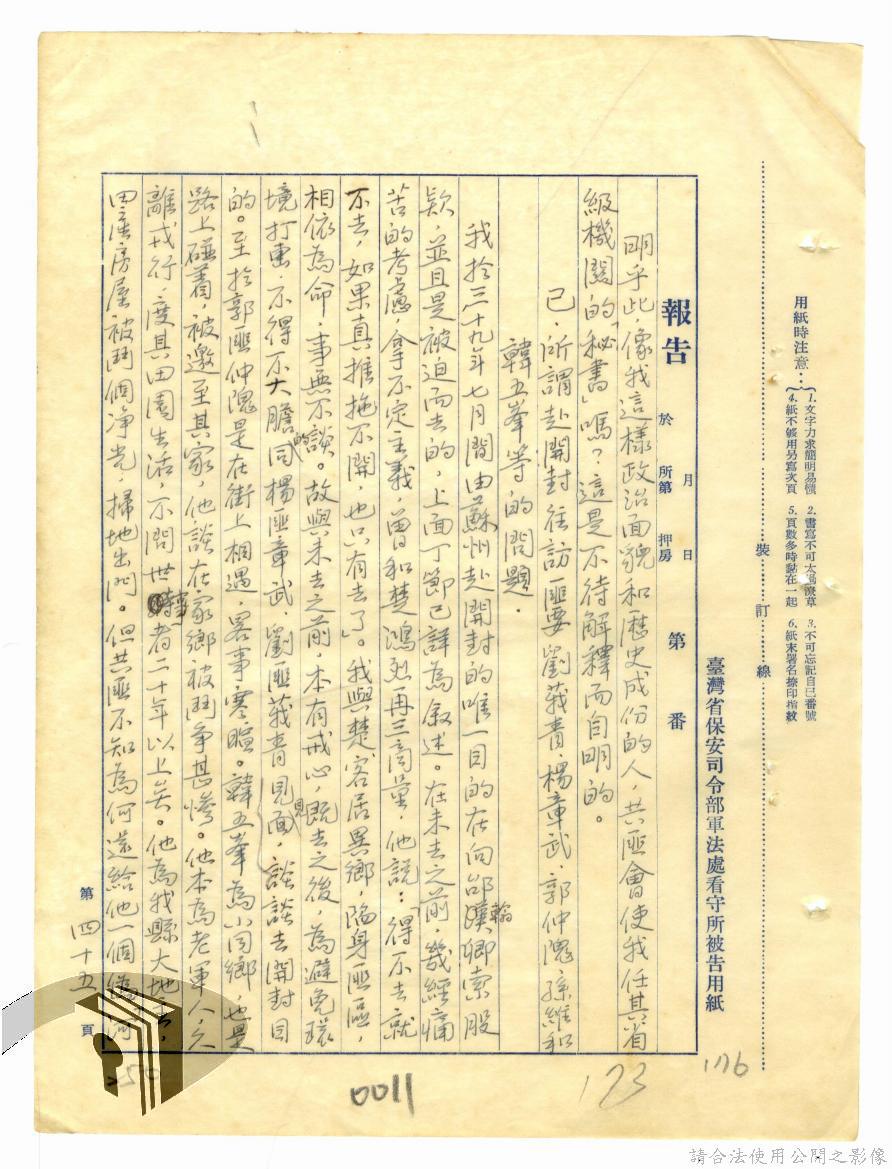 臺灣省保安司令部軍法處看守所被告用紙
用紙時注意…
1.文字力求簡明易懂 2.書寫不可太過潦草 3.不可忘記自己番號
4.紙不够用另寫次頁 5.頁數多時黏在一起 6.紙末署名捺印指紋
裝 訂 線
報告 於 月 日 第 番
所第 押房
明乎此,像我這樣政治面貌和歷史成份的人,共匪會使我任其省
級機關的「秘書」嗎?這是不待解釋而自明的。
己.所謂赴開封往訪匪要劉莪青.楊章武.郭仲隗.孫維和
韓五峯等的問題.
我於三十九年七月間由蘇州赴開封的唯一目的在向邰漢卿索股
欵,並且是被迫而去的,上面丁節已詳為叙述。在未去之前,幾經痛
苦的考慮,拿不定主義,曾和楚鴻烈再三商量,他説:「得不去就
不去,如果真推拖不開,也只有去了」。我與楚客居異鄉,陷身匪區,
相依為命,事無不談。故與未去之前,本有戒心,既去之後,為避免環
境打擊,不得不大膽的同楊匪章武.劉匪莪青見見面,談談去開封目
的。至於郭匪仲隗是在街上相遇,畧事寒暄。韓五峯為小同鄉,也是
路上碰着,被邀至其家,他談在家鄉被鬥爭甚慘。他本為老軍人,久
離戎行,度其田園生活,不問世事者二十年以上矣。他為我縣大地主,
田產房屋被鬥個净光,掃地出門。但共匪不知為何還給他一個偽河
第 四十五 頁
0011
123
176
請合法使用公開之影像